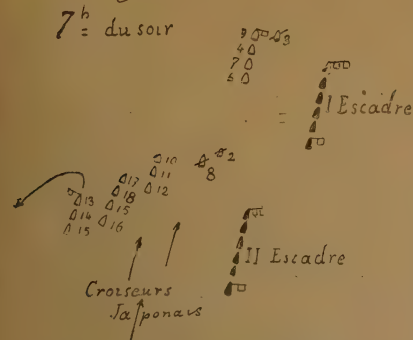 7h du soir
9 3
4
7
6
I Escadre
10 2
11 8
17 12
18
13 15
14 16
15
II Escadre
Croiseurs
Japonais